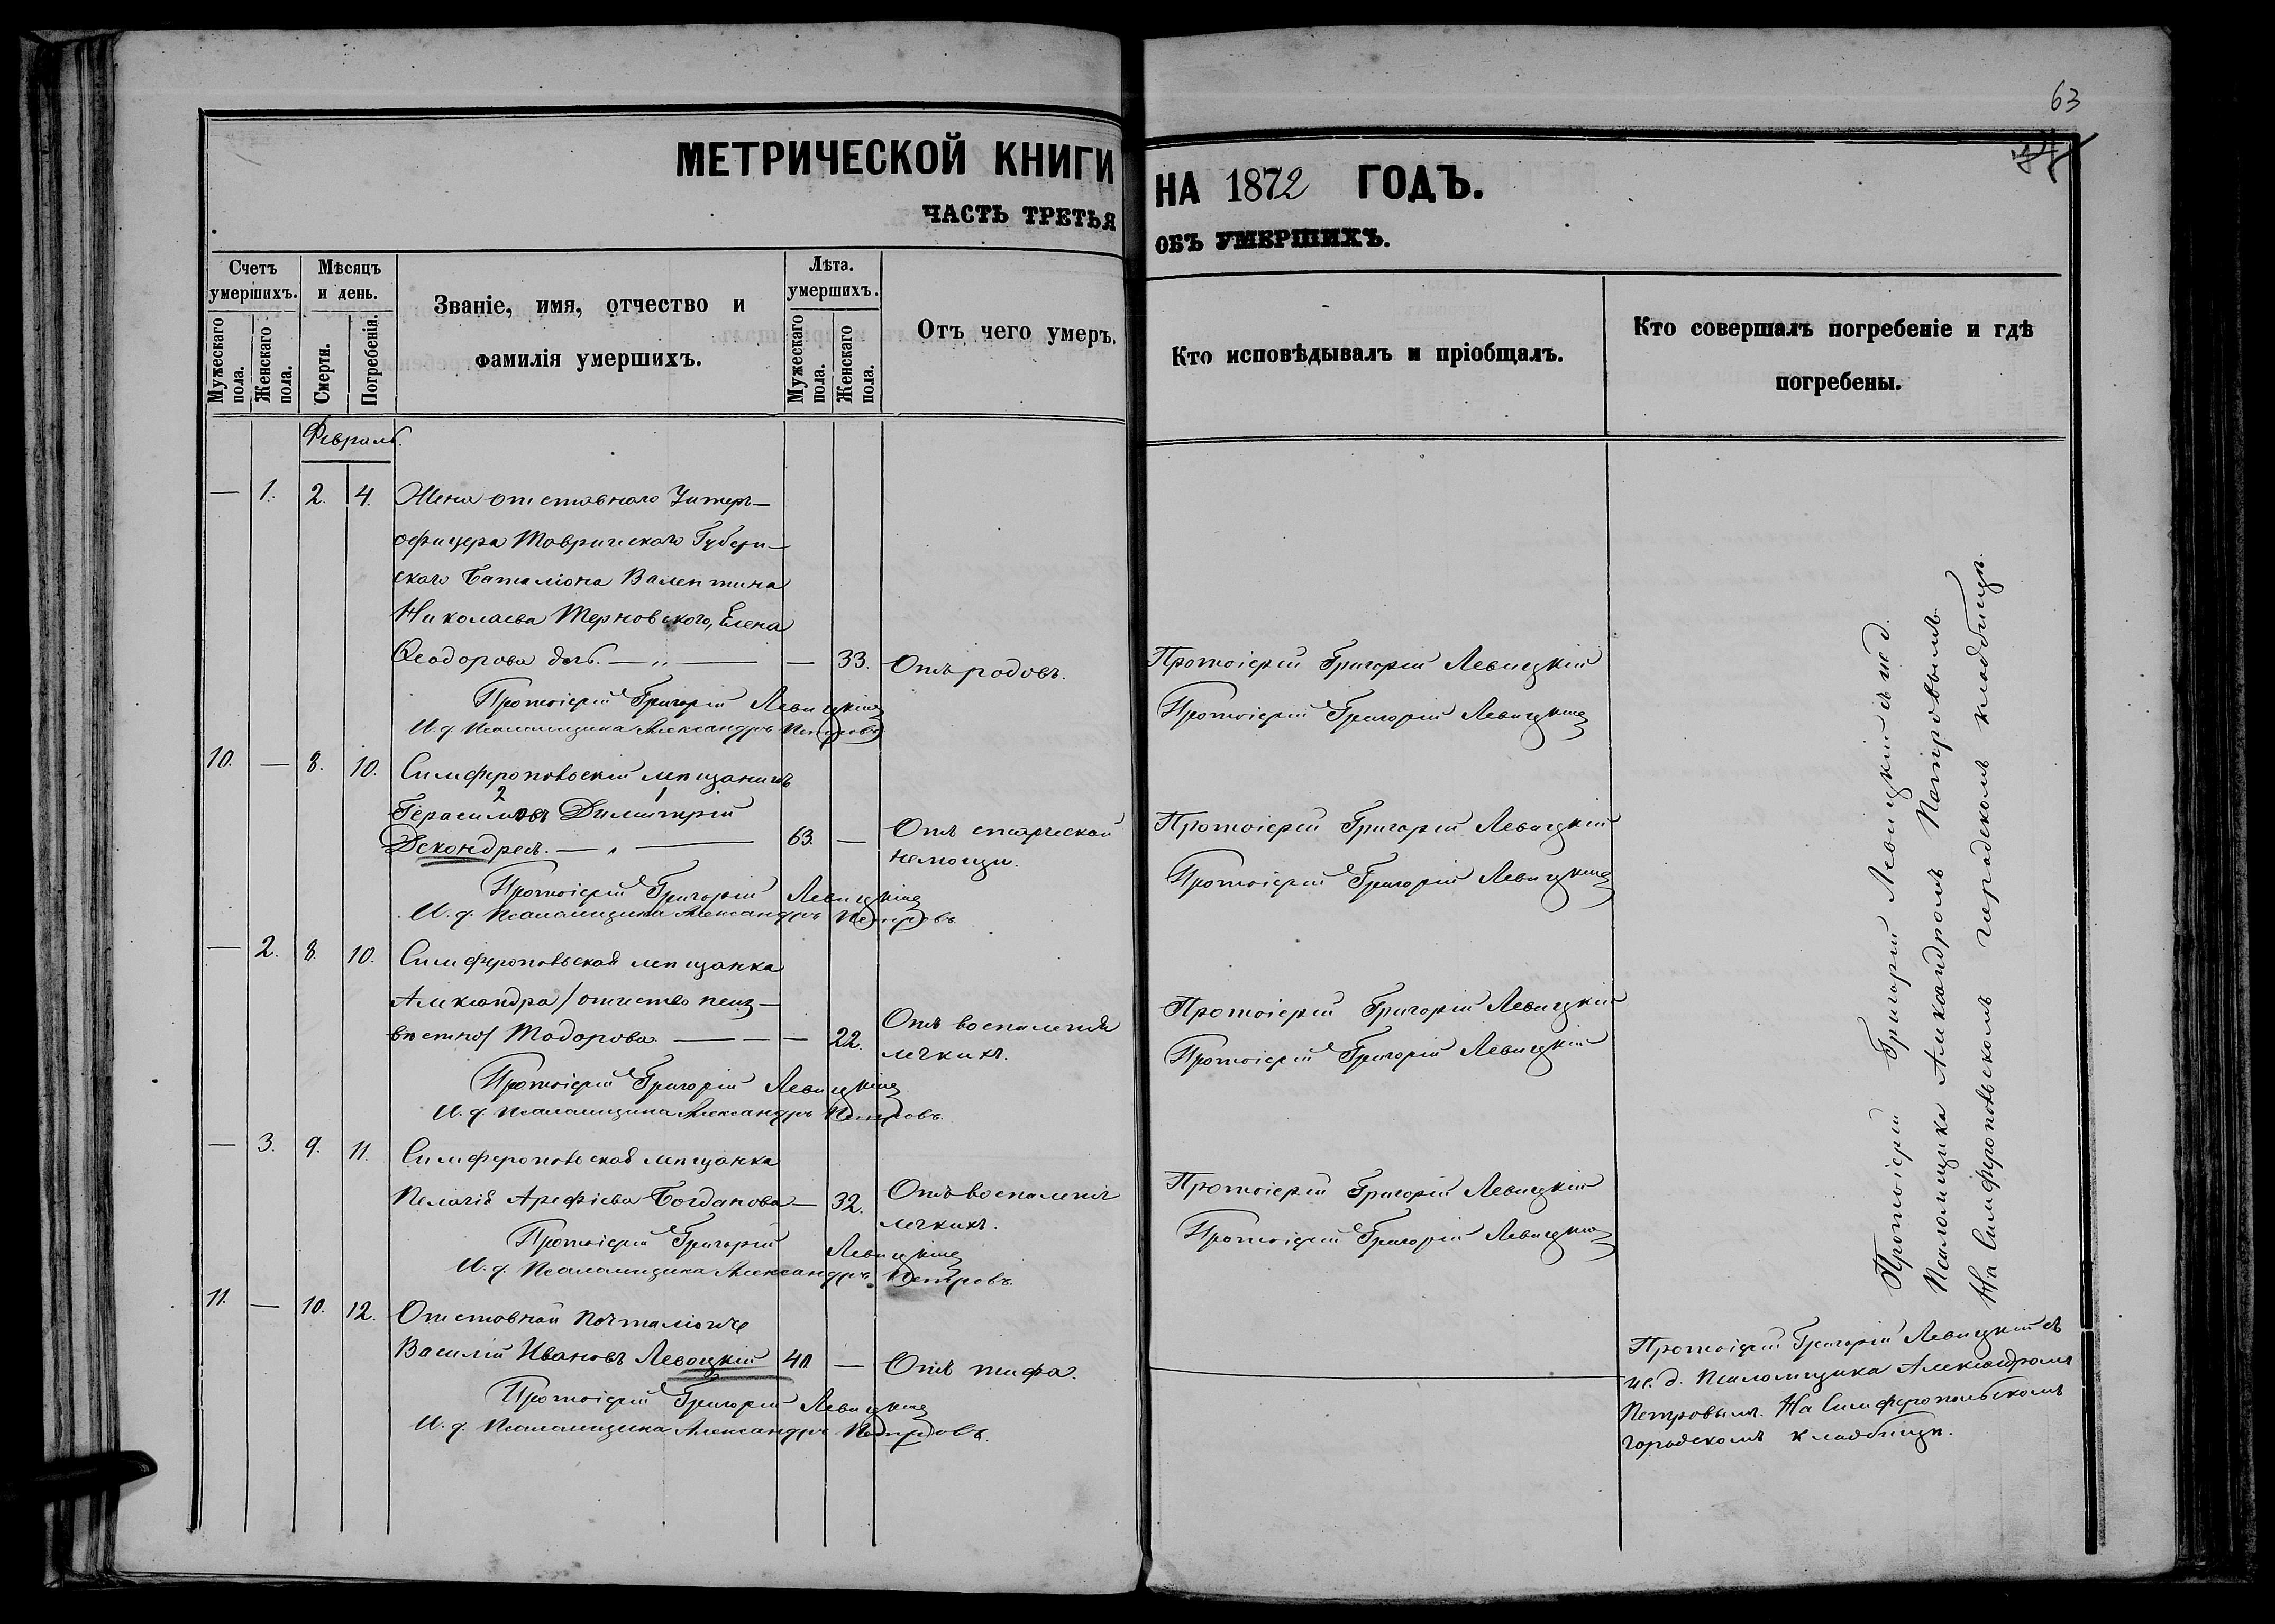 63
МЕТРИЧЕСКОЙ КНИГИ НА 1872 ГОДЪ.
ЧАСТЬ ТРЕТЬЯ ОБЪ УМЕРШИХЪ.
Счетъ умершихъ.
Мужескаго пола.
Женскаго пола.
Мѣсяцъ и день.
Смерти.
Погребенія.
Званіе, имя, отчество и
фамилія умершихъ.
Лѣта. умершихъ.
Мужескаго пола.
Женскаго пола.
Отъ чего умеръ.
Кто исповѣдывалъ и пріобщалъ.
Кто совершалъ погребеніе и гдѣ
погребены.
Февраль.
— 1. 2. 4. Жена отставнаго Унтеръ-
офицера Таврическаго Губерн-
скаго Баталіона Валентина
Николаева Терновскаго, Елена
Ѳеодорова дочь. — „ — — 33. Отъ родовъ. Протоіерей Григорій Левицкій
Протоіерей Григорій Левицкій Протоіерей Григорій Левицкій
И. д. Псаломщика Александръ Петровъ
10. — 8. 10. Симферопольскій мѣщанинъ
2 1
Герасимовъ Димитрій
Декондрея. — „ — 63. — Отъ старческой Протоіерей Григорій Левицкій
немощи.
Протоіерей Григорій Левицкій Протоіерей Григорій Левицкій
И. д. Псаломщика Александръ Петровъ
— 2. 8. 10. Симферопольская мѣщанка
Александра /отчество неиз-
вѣстно/ Тодорова. — — — 22. Отъ воспаленія Протоіерей Григорій Левицкій
легкихъ. Протоіерей Григорій Левицкій
Протоіерей Григорій Левицкій
И. д. Псаломщика Александръ Петровъ.
— 3. 9. 11. Симферопольская мѣщанка
Пелагія Арефіева Богданова — 32. Отъ воспаленія Протоіерей Григорій Левицкій
легкихъ.
Протоіерей Григорій Левицкій Протоіерей Григорій Левицкій
И. д. Псаломщика Александръ Петровъ.
Протоіерей Григорій Левицкій съ и. д.
Псаломщика Александромъ Петровымъ.
На Симферопольскомъ городскомъ кладбищѣ.
11. — 10. 12. Отставной Почталіонъ
Василій Ивановъ Левоцкій — Отъ тифа.
Протоіерей Григорій Левицкій
И. д. Псаломщика Александръ Петровъ.
Протоіерей Григорій Левицкій съ
и. д. Псаломщика Александромъ
Петровымъ. На Симферопольскомъ
городскомъ кладбищѣ.